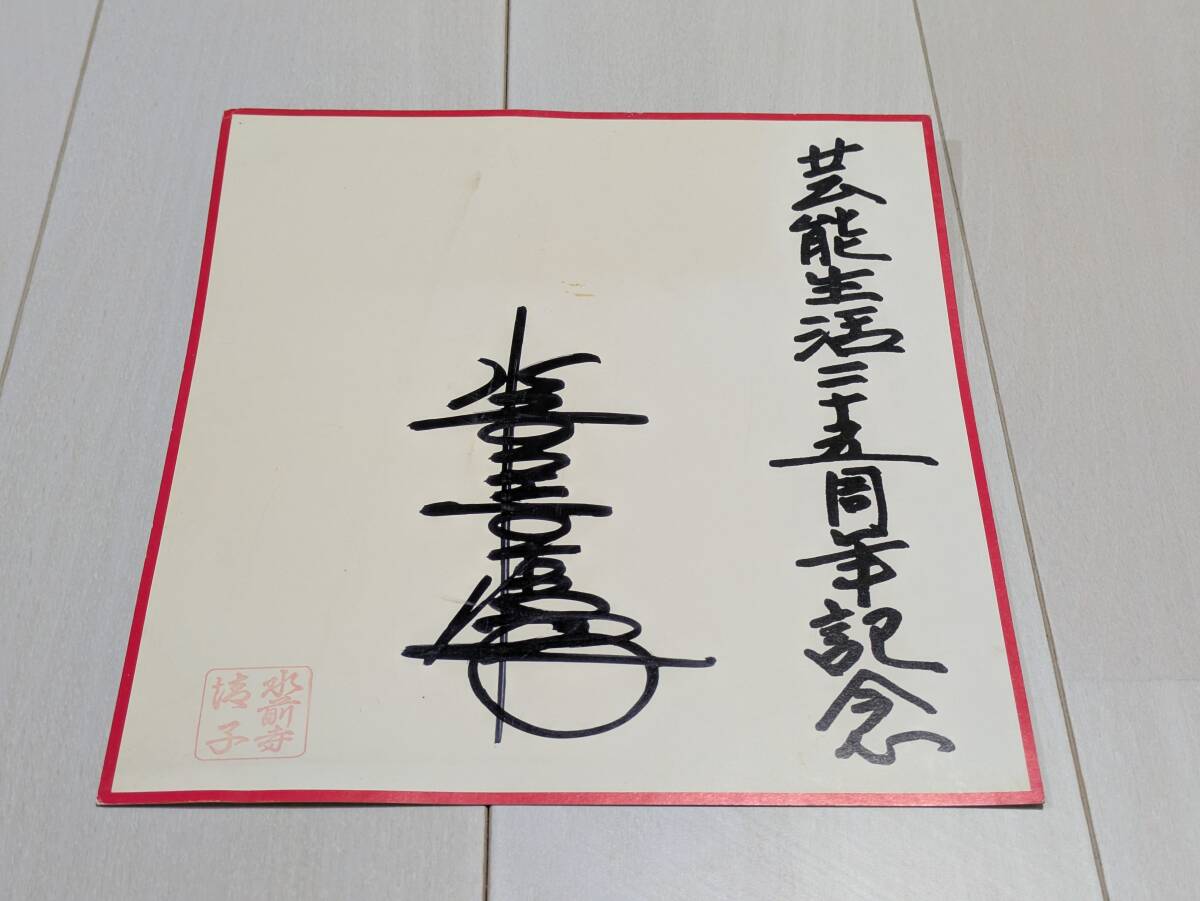 芸能生活二十五周年記念
水前寺
清子